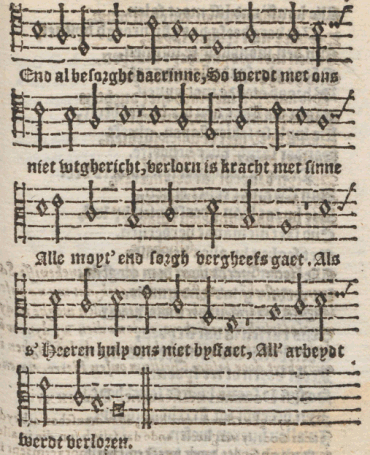 End al besorght daerinne, So werdt met ons
niet wtghericht, verlorn is kracht met sinne
Alle moyt' end sorgh vergheefs gaet. Als
s' Heeren hulp ons niet bystaet, All' arbeydt
werdt verloren.